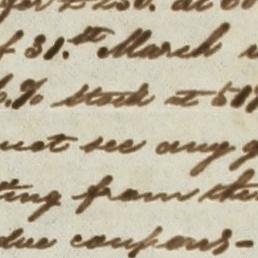 for £250. at 60
f 31.st March
6.% Stock at 51
not see any g
ting from the
due coupons-